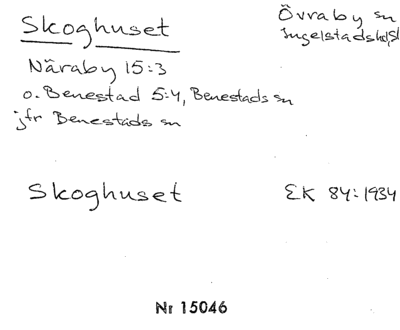 Skoghuset
Övraby sn
Ingelstads hd, Sk
Näraby 15:3
o. Benestad 5:4, Benestads sn
jfr Benestads sn
Skoghuset
EK 84:1934
Nr 15046